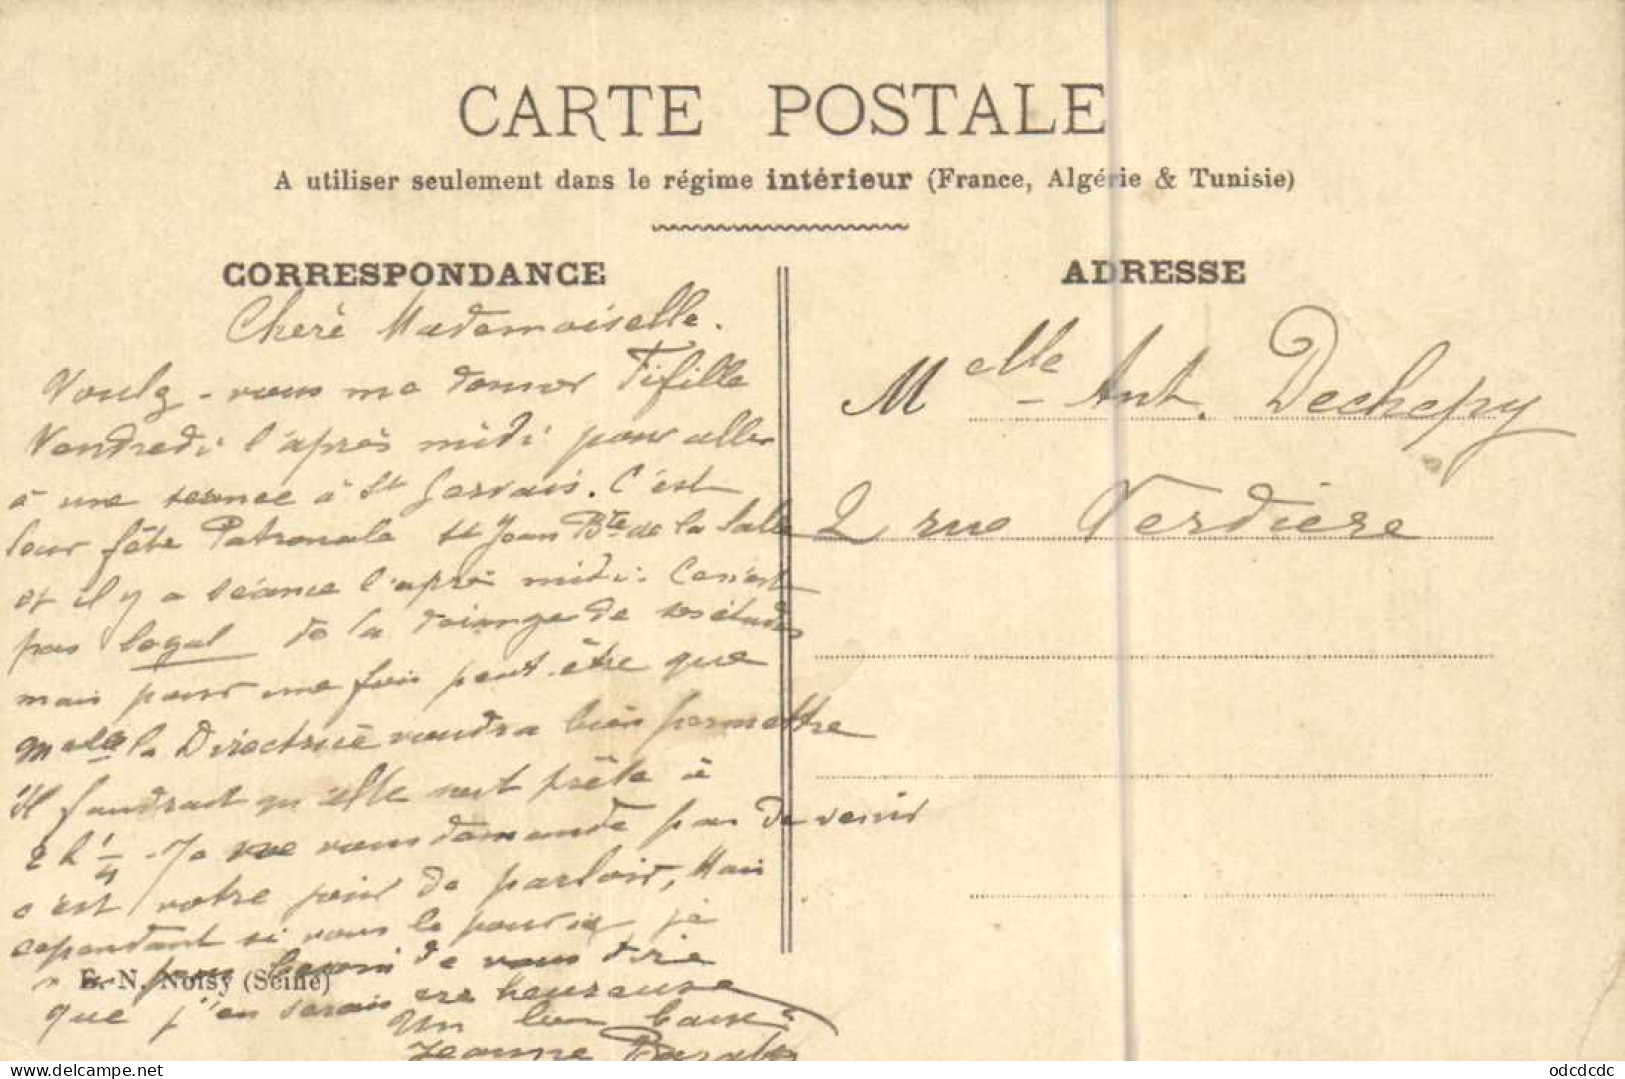 CARTE POSTALE
A utiliser seulement dans le régime intérieur (France, Algérie & Tunisie)
CORRESPONDANCE
Cherè Mademoiselle.
Voulez-vous me donner Fifille
Vendredi l'après midi pour aller
à une seance à St Gervais. C'est
leur fête Patronale St Jean Bte de la Salle
et il y a séance l'après midi. Ce n'est
pas légal de la déranger de ses études
mais pour une fois peut-être que
Melle la Directrice voudra bien permettre
il faudrait qu'elle soit prête à
2 h 1/4 - Je ne vous demande pas de venir
c'est votre jour de parloir, Mais
cependant si vous le pouviez, je
n'ai pas besoin de vous dire
que j'en serais heureuse
Un bon baiser
Jeanne
E. N. Noisy (Seine)
ADRESSE
Melle Ant. Dechepy
2 rue Verdière
delcampe.net
odcdcdc